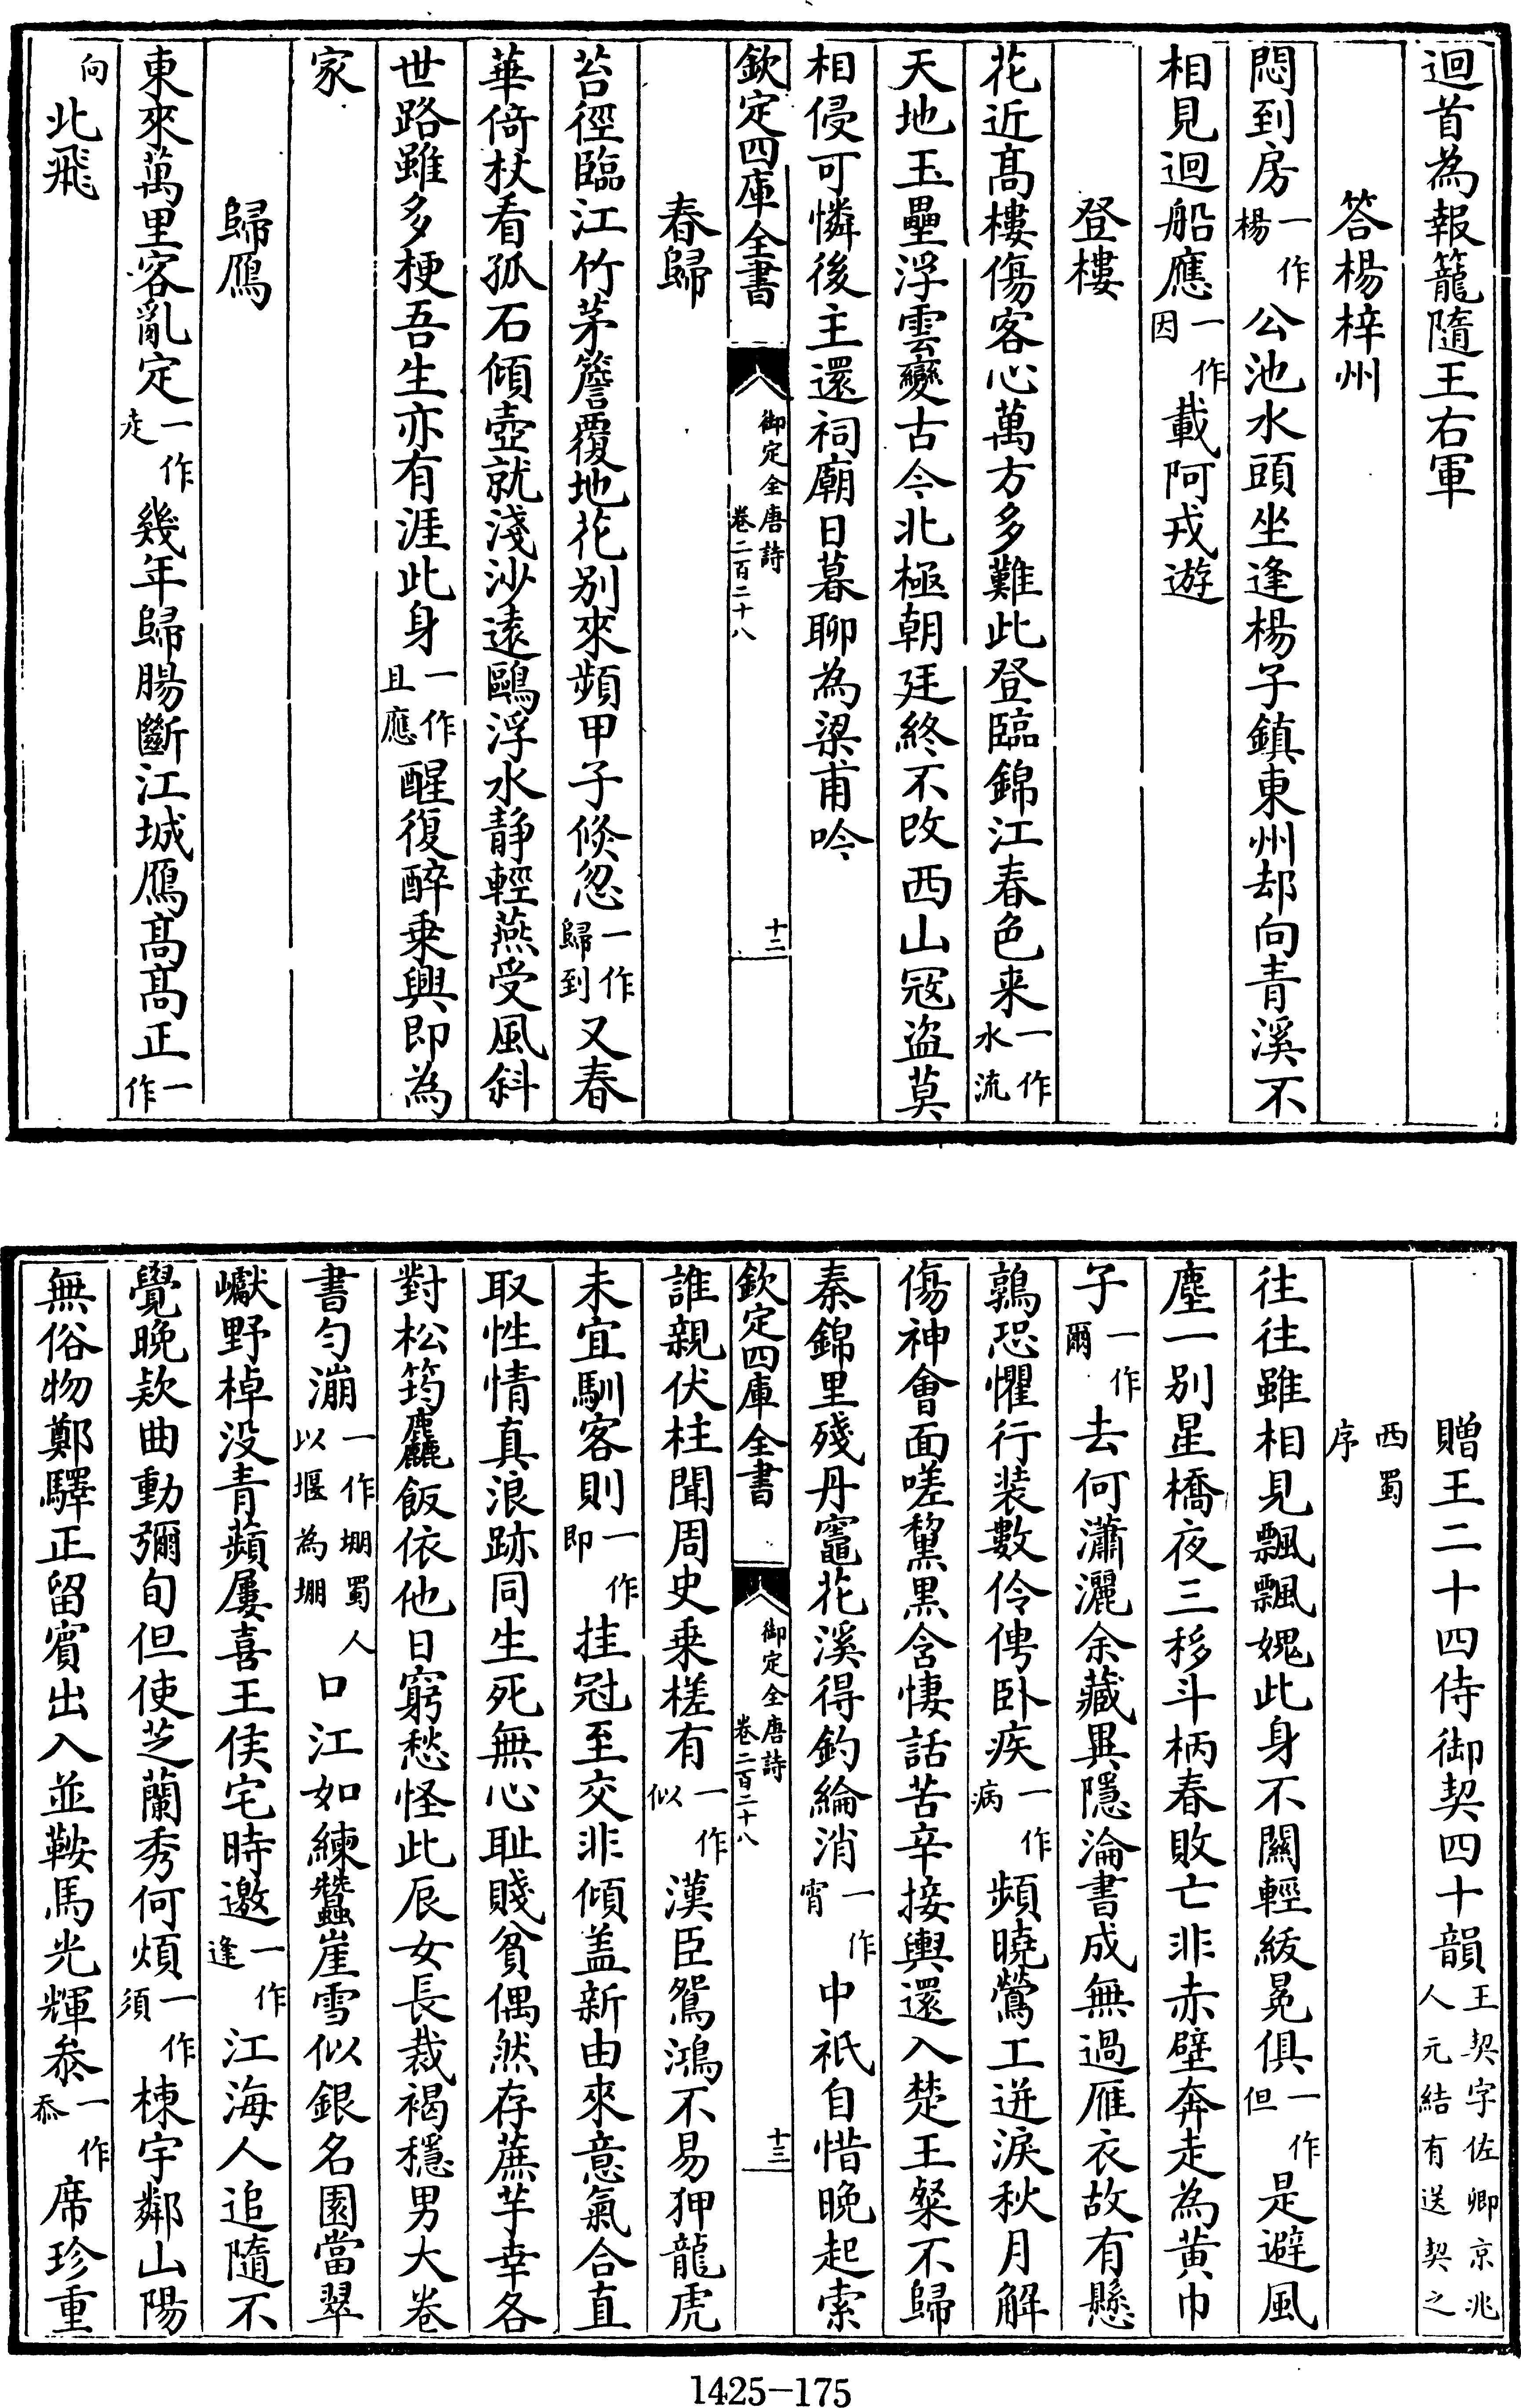 迴首為報籠隨王右軍
答楊梓州
悶到房一作楊公池水頭坐逢楊子鎮東州却向青溪不
相見迴船應一作因載阿戎遊
登樓
花近髙樓傷客心萬方多難此登臨錦江春色来一作水流
天地玉壘浮雲變古今北極朝廷終不改西山冦盗莫
相侵可憐後主還祠廟日暮聊為梁甫吟
欽定四庫全書
御定全唐詩
卷二百二十八
十二
春歸
苔徑臨江竹茅簷覆地花别來頻甲子倐忽一作歸到又春
華倚杖看孤石傾壺就淺沙逺鷗浮水静輕燕受風斜
世路雖多梗吾生亦有涯此身一作且應醒復醉乗興即為
家
歸鴈
東來萬里客亂定一作走幾年歸腸斷江城鴈髙髙正一作
向北飛
贈王二十四侍御契四十韻王契字佐卿京兆人元結有送契之
西蜀序
往往雖相見飄飄媿此身不關輕紱冕俱一作但是避風
塵一别星橋夜三移斗柄春敗亡非赤壁奔走為黄巾
子一作爾去何瀟灑余藏異隠淪書成無過雁衣故有懸
鶉恐懼行装數伶俜卧疾一作病頻曉鶯工迸淚秋月解
傷神會面嗟黧黒含悽話苦辛接輿還入楚王粲不歸
秦錦里殘丹竈花溪得釣綸消一作宵中祇自惜晚起索
欽定四庫全書
御定全唐詩
卷二百二十八
十三
誰親伏柱聞周史乗槎有一作似漢臣鴛鴻不易狎龍虎
未宜馴客則一作即挂冠至交非傾盖新由來意氣合直
取性情真浪跡同生死無心耻賤貧偶然存蔗芋幸各
對松筠麤飯依他日窮愁怪此辰女長裁褐穩男大卷
書勻漰一作堋蜀人以堰為堋口江如練蠶崖雪似銀名園當翠
巘野棹没青蘋屢喜王侯宅時邀一作逢江海人追隨不
覺晚欵曲動彌旬但使芝蘭秀何煩一作須棟宇鄰山陽
無俗物鄭驛正留賓出入並鞍馬光輝叅一作忝席珍重
1425-175